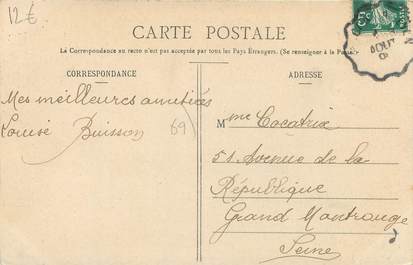 12€
CARTE POSTALE
La Correspondance au recto n'est pas acceptée par tous les Pays Étrangers. (Se renseigner à la Poste)
CORRESPONDANCE
ADRESSE
Mes meilleures amitiés
Louise Buisson
69
Mme Cocatrix
51 Avenue de la
République
Grand Montrouge
Seine
5c
AOUT